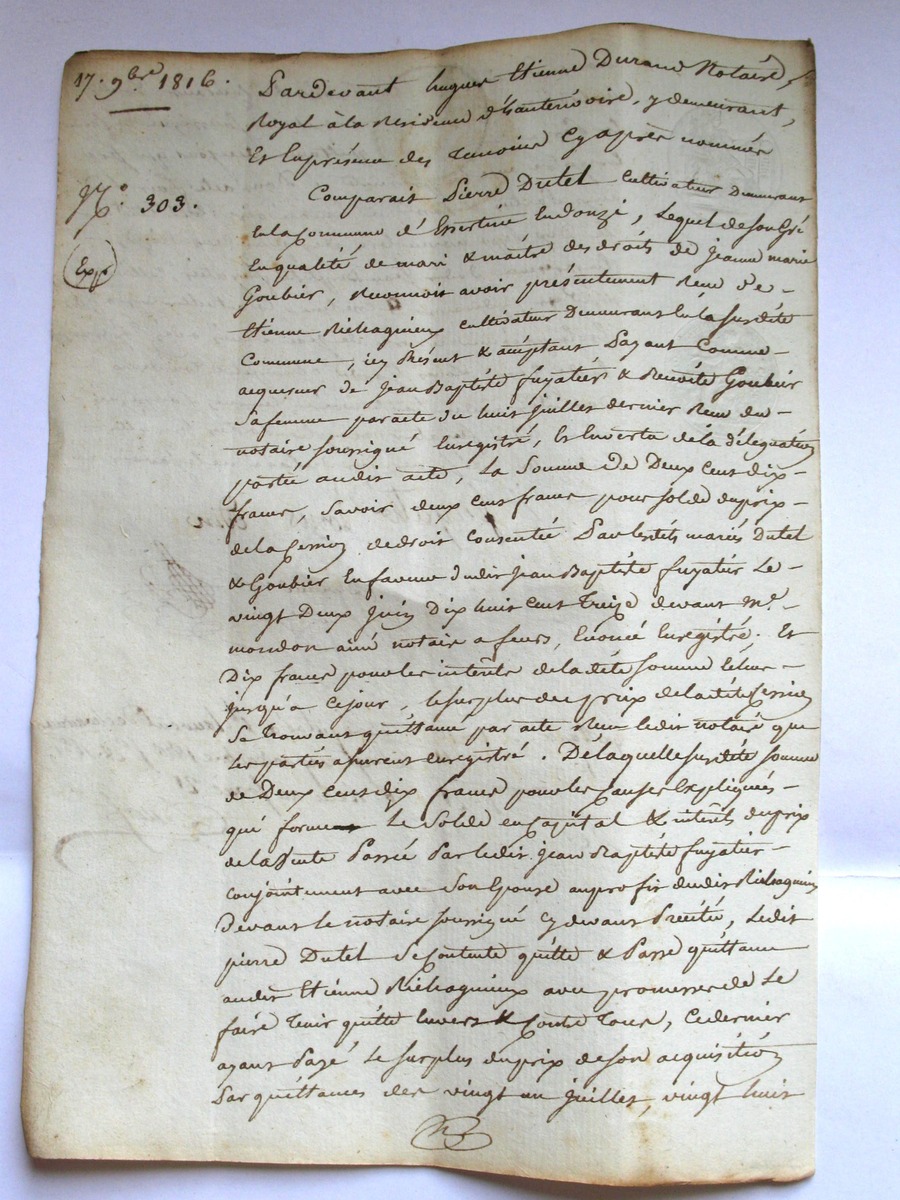 17. 9bre 1816.
Pardevant hugues Etienne Durand Notaire
Royal à la Residence d'hauterivoire, y demeurant,
Et En présence des temoins Cy après nommés
N.° 303.
Comparait Pierre Dutel Cultivateur Demeurant
En la Commune d'Essertine En donzi, Lequel de Son Gré
Expé
En qualité de mari & maitre des droits de jeanne marie
Goubier, Reconnoit avoir présentement Recu d'e-
Etienne Richagneux cultivateur Demeurant En la susdite
Commune, icy Present & acceptant Payant Comme
acquereur de jean Baptiste fuyatier & Benoite Goubier
Sa femme par acte du huit juillet dernier Recu du
notaire soussigné Enregistré, Et En vertu de la délégation
portée audit acte, La Somme de Deux Cent dix
francs, Savoir deux cent francs pour solde du prix
de la Cession de droit Consentie Par lesdits mariés Dutel
& Goubier En faveur dudit jean Baptiste fuyatier Le
vingt Deux juin Dix huit Cent Treize devant Me
mondon ainé notaire a feurs, Enoncé Enregistré. Et
Dix francs pour les intérêts de la dite somme Echus
jusqu'a ce jour, le surplus du prix de la dite Cession
Se trouvant quittancé par acte Recu ledit notaire que
les parties assurent enregistré. De laquelle susdite somme
de Deux Cent dix francs pour les Causes Expliquées
qui forme Le Solde en Capital & intérêt du prix
de la Vente Passée Par ledit jean Baptiste fuyatier
conjointement avec Son Epouse au profit dudit Richagneux
Devant le notaire soussigné cy devant Precité, Ledit
pierre Dutel Se Contente quitte & Passe quittance
audit Etienne Richagneux avec promesse de Le
faire Tenir quitte Envers & Contre Tous, Ce dernier
ayant Payé Le surplus du prix de son acquisition
Par quittances des vingt un juillet, vingt huit